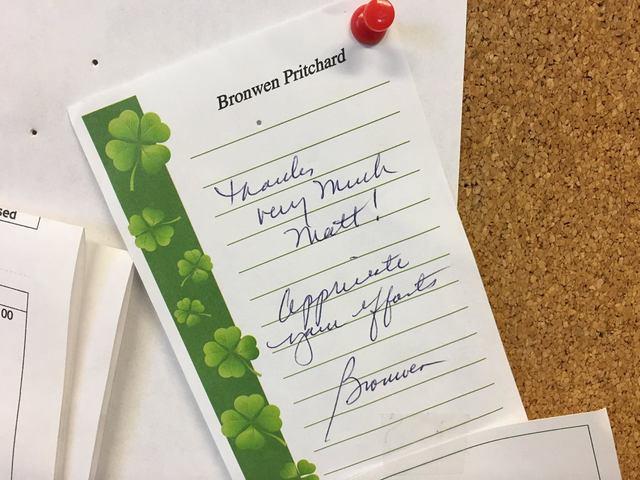 Bronwen Pritchard
Thanks
very much
Matt!
Appriciate
your efforts
Bronwen
sed
00